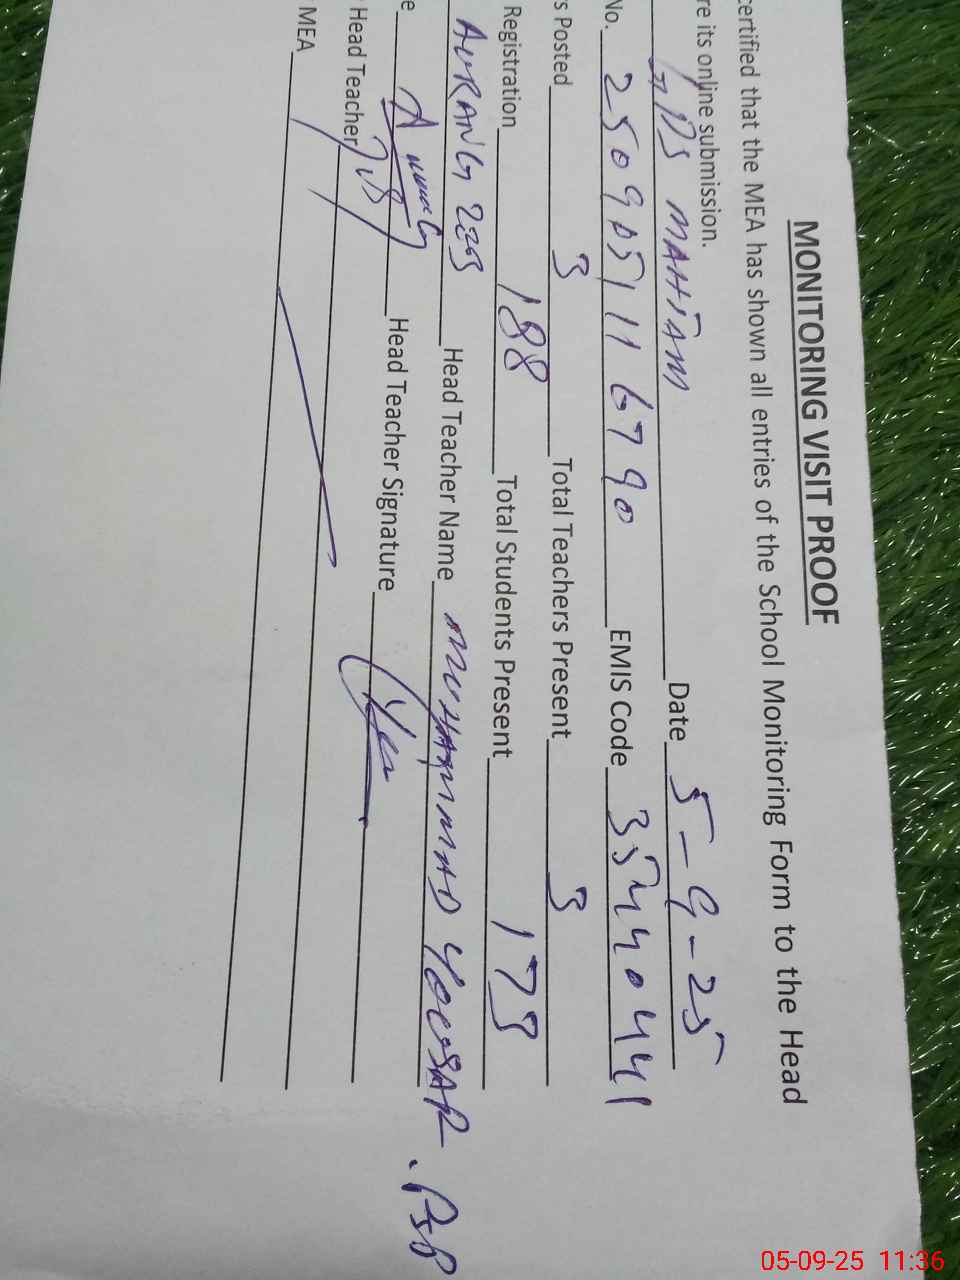 MONITORING VISIT PROOF
certified that the MEA has shown all entries of the School Monitoring Form to the Head
re its online submission.
MAHIAM Date 5-9-25
No. 25090511 6790 EMIS Code 35440441
s Posted 3 Total Teachers Present 3
Registration 188 Total Students Present 173
AURANG ZEB Head Teacher Name MUHAMMAD YOUSAF. PSP
e Head Teacher Signature
Head Teacher
MEA
05-09-25 11:36